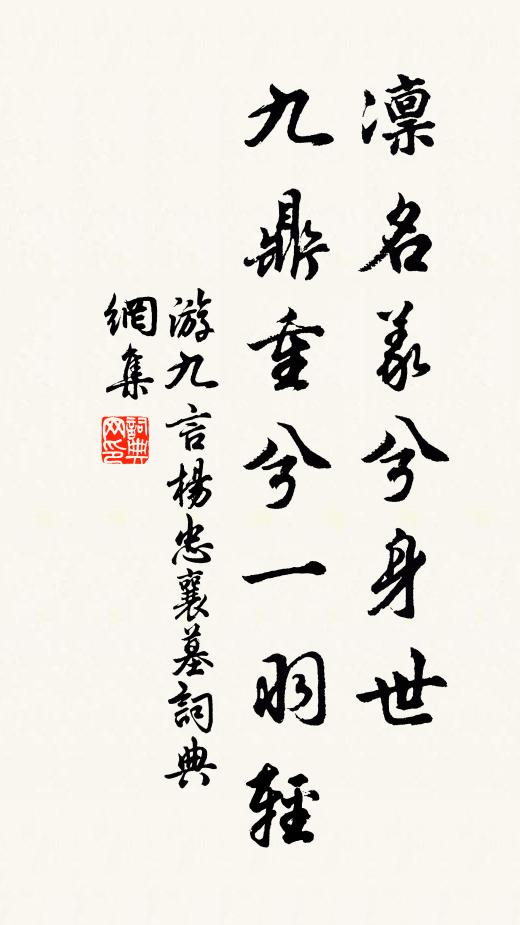 凛名義兮身世
九鼎重兮一羽輕
游九言楊忠襄墓詞典
網集
詞典
网印